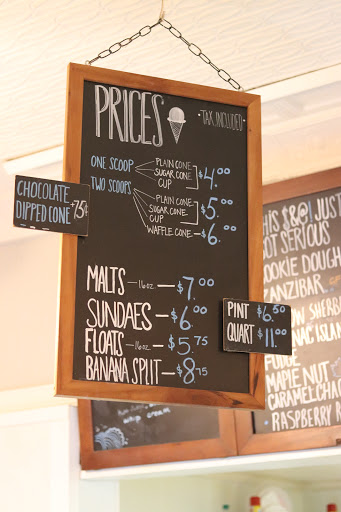 PRICES
·TAX INCLUDED·
ONE SCOOP
PLAIN CONE
SUGAR CONE
CUP
$4.00
TWO SCOOPS
PLAIN CONE
SUGAR CONE
CUP
$5.00
WAFFLE CONE
$6.00
CHOCOLATE
DIPPED CONE
+75¢
MALTS—16oz—$7.00
SUNDAES—$6.00
FLOATS—16oz.—$5.75
BANANA SPLIT—$8.75
PINT $6.50
QUART $11.00
THIS $&@! JUST
GOT SERIOUS
COOKIE DOUGH
ZANZIBAR
SHERB
ISLAN
FUDGE
MAPLE NUT
CARAMEL
RASPBERRY